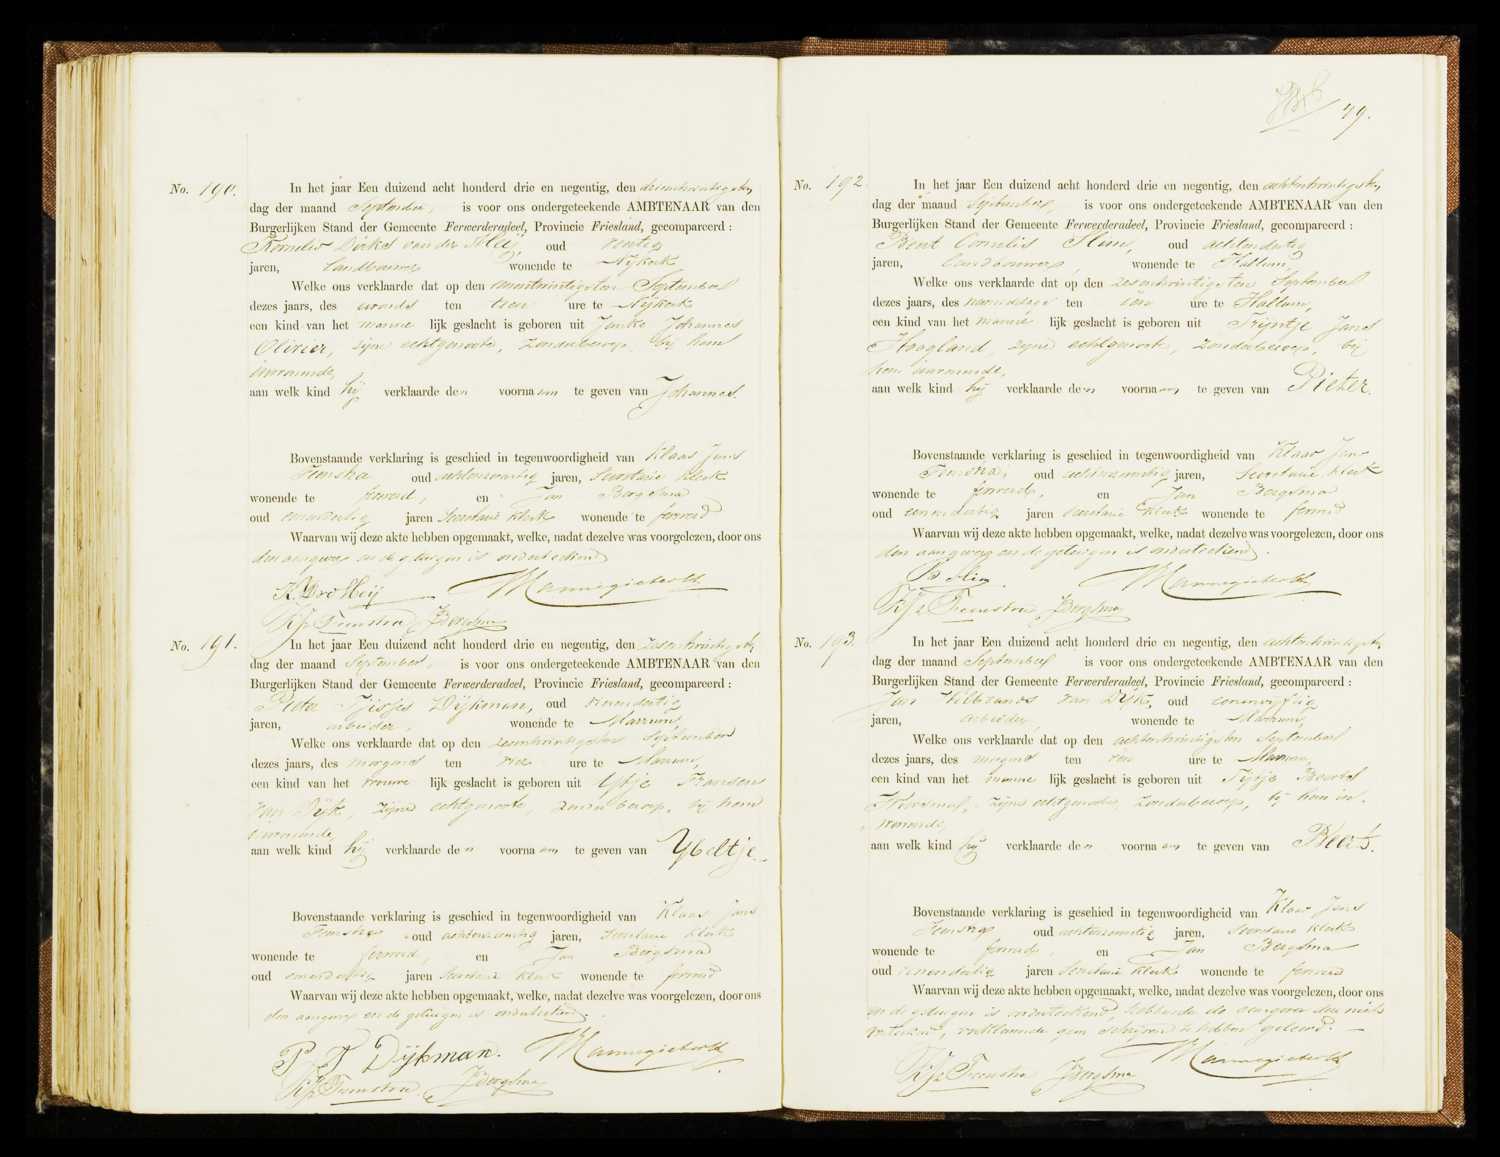 No. 190.
In het jaar Een duizend acht honderd drie en negentig, den drieentwintigsten
dag der maand September, is voor ons ondergeteekende AMBTENAAR van den
Burgerlijken Stand der Gemeente Ferwerderadeel, Provincie Friesland, gecompareerd:
Kornelis Dirks van der Meij, oud veertig
jaren, landbouwer wonende te Nijkerk
Welke ons verklaarde dat op den September
dezes jaars, des avonds ten tien ure te Nijkerk
een kind van het manne lijk geslacht is geboren uit Janke Johannes
Olivier, zijne echtgenoote, zonder beroep, bij hem
inwonende,
aan welk kind hij verklaarde den voornaam te geven van Johannes.
Bovenstaande verklaring is geschied in tegenwoordigheid van Klaas Jans
Feenstra oud achtenzeventig jaren, Secretarie klerk
wonende te Ferwerd, en Jan Bergsma
oud eenendertig jaren Secretarie klerk wonende te Ferwerd
Waarvan wij deze akte hebben opgemaakt, welke, nadat dezelve was voorgelezen, door ons
den aangever en de getuigen is onderteekend
K D v d Meij Mannegieter
KJz Feenstra JBergsma
No. 191.
In het jaar Een duizend acht honderd drie en negentig, den zesentwintigsten
dag der maand September, is voor ons ondergeteekende AMBTENAAR van den
Burgerlijken Stand der Gemeente Ferwerderadeel, Provincie Friesland, gecompareerd:
Pieter Dijkman, oud
jaren, arbeider, wonende te Marrum,
Welke ons verklaarde dat op den zesentwintigsten September
dezes jaars, des morgens ten vier ure te Marrum,
een kind van het vrouwe lijk geslacht is geboren uit IJtje Fransen
van Dijk, zijne echtgenoote, zonder beroep, bij hem
inwonende,
aan welk kind hij verklaarde den voornaam te geven van Ybeltje.
Bovenstaande verklaring is geschied in tegenwoordigheid van Klaas Jans
Feenstra oud achtenzeventig jaren, Secretarie klerk
wonende te Ferwerd, en Jan Bergsma
oud eenendertig jaren Secretarie klerk wonende te Ferwerd
Waarvan wij deze akte hebben opgemaakt, welke, nadat dezelve was voorgelezen, door ons
den aangever en de getuigen is onderteekend.
P T Dijkman. Mannegieter
KJz Feenstra. JBergsma
49.
No. 192.
In het jaar Een duizend acht honderd drie en negentig, den achtentwintigsten
dag der maand September, is voor ons ondergeteekende AMBTENAAR van den
Burgerlijken Stand der Gemeente Ferwerderadeel, Provincie Friesland, gecompareerd:
Cornelis oud achtendertig
jaren, landbouwer, wonende te Hallum
Welke ons verklaarde dat op den zesentwintigsten September
dezes jaars, des namiddags ten een ure te Hallum,
een kind van het manne lijk geslacht is geboren uit Trijntje Jans
Hoogland, zijne echtgenoote, zonder beroep, bij
hem inwonende,
aan welk kind hij verklaarde den voornaam te geven van Pieter.
Bovenstaande verklaring is geschied in tegenwoordigheid van Klaas Jans
Feenstra, oud achtenzeventig jaren, Secretarie klerk
wonende te Ferwerd, en Jan Bergsma
oud eenendertig jaren Secretarie klerk wonende te Ferwerd
Waarvan wij deze akte hebben opgemaakt, welke, nadat dezelve was voorgelezen, door ons
den aangever en de getuigen is onderteekend.
Mannegieter
KJz Feenstra JBergsma
No. 193.
In het jaar Een duizend acht honderd drie en negentig, den achtentwintigsten
dag der maand September is voor ons ondergeteekende AMBTENAAR van den
Burgerlijken Stand der Gemeente Ferwerderadeel, Provincie Friesland, gecompareerd:
Jan van Dijk, oud eenenvijftig
jaren, arbeider, wonende te Marrum,
Welke ons verklaarde dat op den achtentwintigsten September
dezes jaars, des morgens ten ure te Marrum,
een kind van het manne lijk geslacht is geboren uit
zijne echtgenoote, zonder beroep, bij hem in-
wonende,
aan welk kind hij verklaarde den voornaam te geven van Beert.
Bovenstaande verklaring is geschied in tegenwoordigheid van Klaas Jans
Feenstra oud achtenzeventig jaren, Secretarie klerk
wonende te Ferwerd, en Jan Bergsma
oud eenendertig jaren Secretarie klerk wonende te Ferwerd
Waarvan wij deze akte hebben opgemaakt, welke, nadat dezelve was voorgelezen, door ons
en de getuigen is onderteekend, hebbende de aangever dee niet
verklarende geen schrijven te hebben geleerd.
KJz Feenstra JBergsma Mannegieter